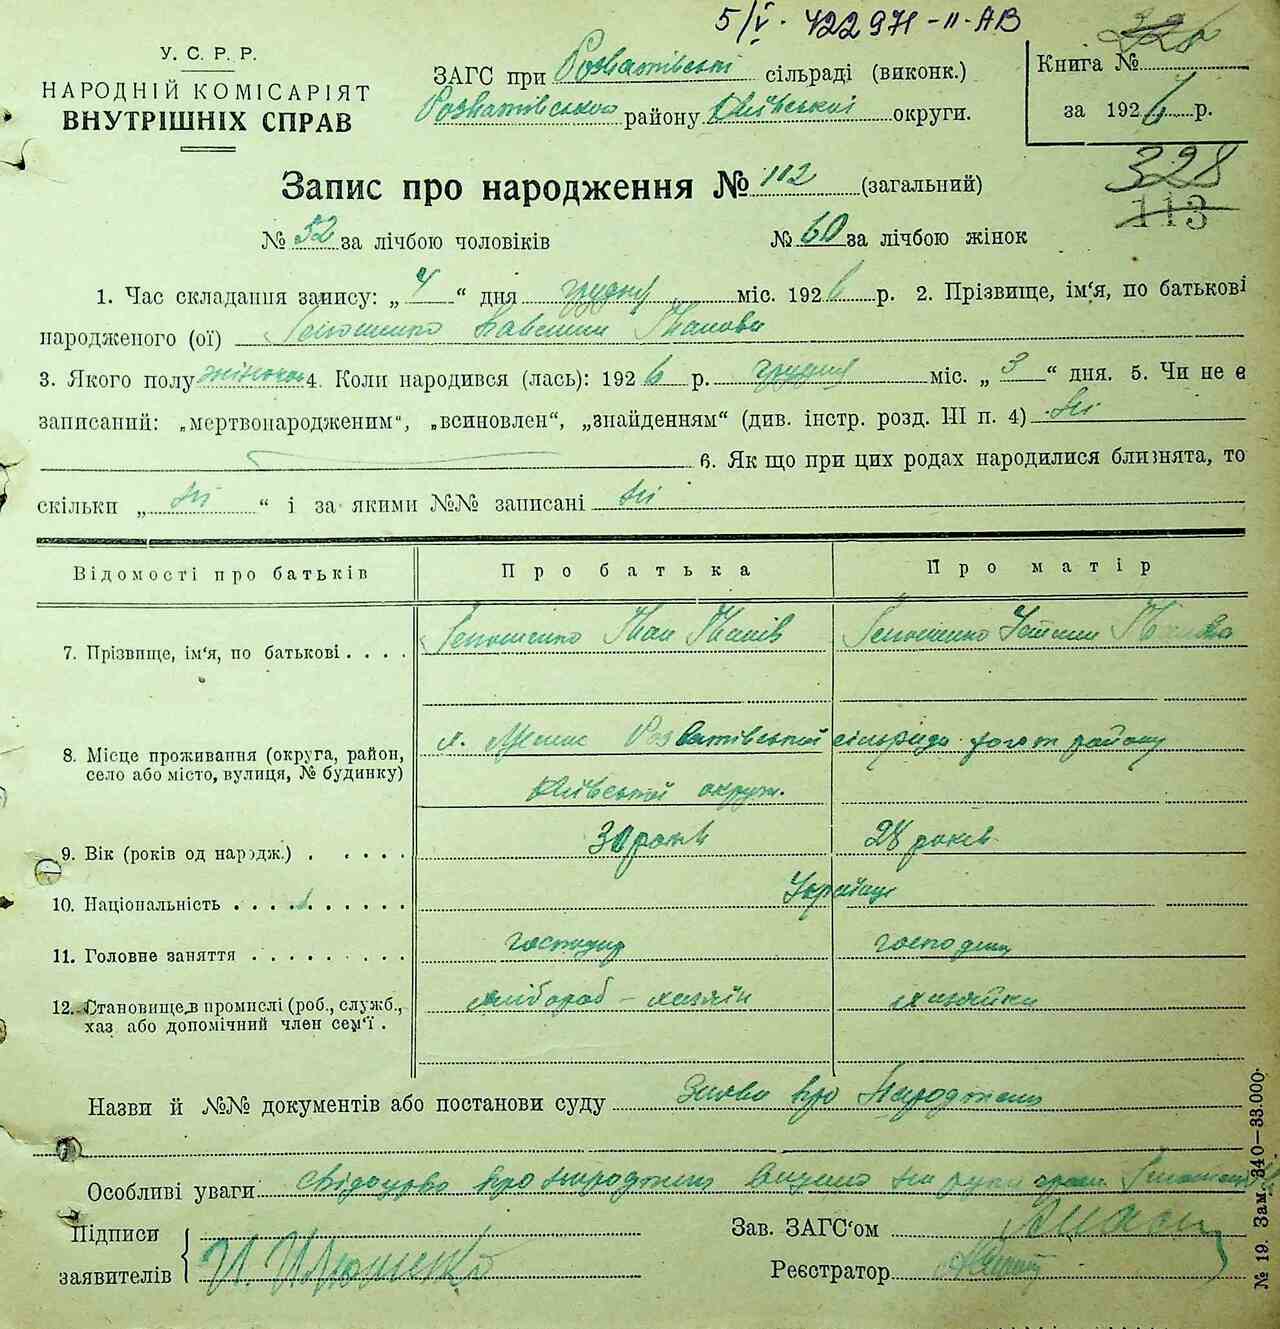 5/V. 422971-II-АВ
У. С. Р. Р.
НАРОДНІЙ КОМІСАРІЯТ
ВНУТРІШНІХ СПРАВ
ЗАГС при Розватівські сільраді (виконк.)
Розватівського району Київської округи.
Книга №
за 1926 р.
328
113
Запис про народження № 112 (загальний)
№ 52 за лічбою чоловіків № 60 за лічбою жінок
1. Час складання запису: „4“ дня грудня міс. 1926 р. 2. Прізвище, ім'я, по батькові
народженого (ої) Іванова
3. Якого полу жіночого 4. Коли народився (лась): 1926 р. грудня міс. „3“ дня. 5. Чи не є
записаний: „мертвонародженим“, „всиновлен“, „знайденням“ (див. інстр. розд. III п. 4) Ні
6. Як що при цих родах народилися близнята, то
скільки „Ні“ і за якими №№ записані Ні
Відомості про батьків Про батька Про матір
7. Прізвище, ім'я, по батькові . . . . Ілюшенко Іван Іванів Ілюшенко
8. Місце проживання (округа, район,
село або місто, вулиця, № будинку) Розватівської сільради того ж району
Київської округи.
9. Вік (років од народж.) . . . . . 30 років 28 років
10. Національність . . . . . . . . . . Українці
11. Головне заняття . . . . . . . . . господар господиня
12. Становище в промислі (роб., служб.,
хаз або допомічний член сем'ї . хлібороб - хазяїн хазяйка
Назви й №№ документів або постанови суду Заява про Народження
Особливі уваги Свідоцтво про народження видано на руки гром.
Підписи
заявителів И. Илюшенко
Зав. ЗАГС'ом
Реєстратор
№ 19. Зам. 340—33.000.